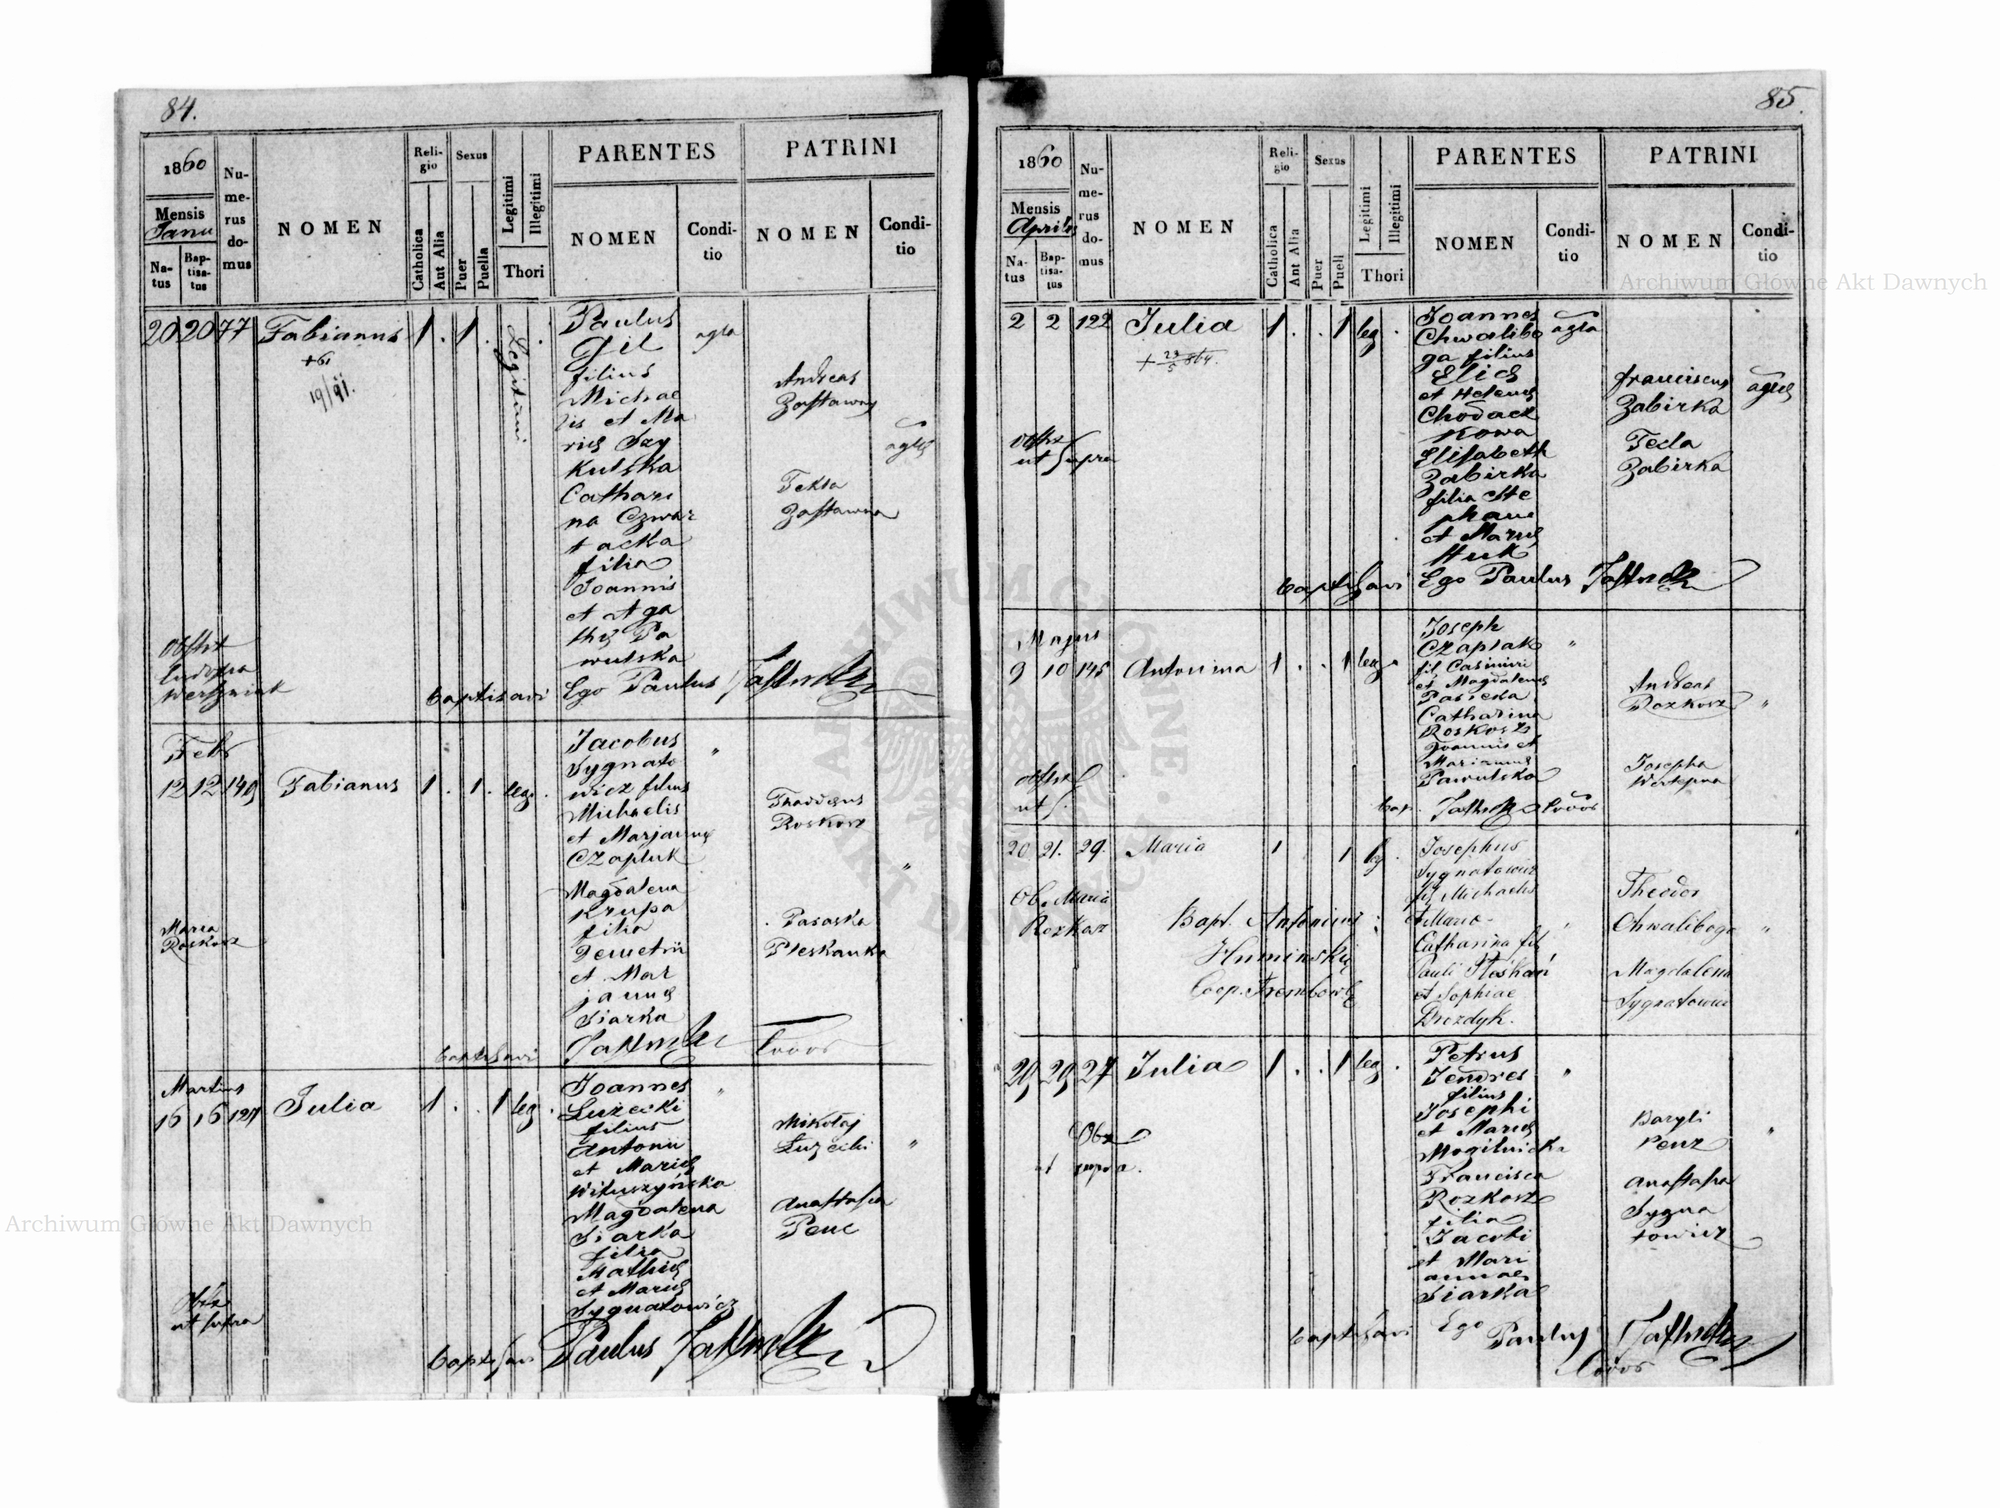 84.
1860
Mensis
Janu
Na-
tus
Bap-
tisa-
tus
Nu-
me-
rus
do-
mus
NOMEN
Reli-
gio
Catholica
Aut Alia
Sexus
Puer
Puella
Legitimi
Illegitimi
Thori
PARENTES
NOMEN
Condi-
tio
PATRINI
NOMEN
Condi-
tio
20 20 77 Fabianus 1 . 1 .
Legitimi
Paulus
Gil
filius
Michae
lis et Ma
Kulska
Cathari
na Czwar
tacka
filia
Joannis
et Aga
thę Pa
wulska
agla
Andreas
Tekla
Zastawna
baptisavi Ego Paulus
Febr
12 12 149 Fabianus 1 . 1 . leg.
Jacobus
Sygnato
wicz filius
Michaelis
et Marjannę
Czapluk
Magdalena
Krupa
filia
Demetrii
et Mar
jannę
Siarka
Thaddeus
Roskosz
Paraska
Pleskanka
Maria
Roskosz
baptisavi
Martius
16 16 127 Julia 1 . . 1 leg.
Joannes
Łuzecki
filius
Antonii
et Marię
Wituszyńska
Magdalena
Siarka
filia
Mathię
et Marię
Sygnatowicz
Mikołaj
Łuzecki
Anastasia
Penc
ut supra
baptisavi Paulus
85.
1860
Mensis
Aprilis
Na-
tus
Bap-
tisa-
tus
Nu-
me-
rus
do-
mus
NOMEN
Reli-
gio
Catholica
Ant Alia
Sexus
Puer
Puell
Legitimi
Illegitimi
Thori
PARENTES
NOMEN
Condi-
tio
PATRINI
NOMEN
Condi-
tio
2 2 122 Julia 1 . . 1 leg .
Joannes
Chwalibo
ga filius
Elię
et Helenę
Chodacz
kowa
Elisabeth
Zabirka
filia Ste
phani
et Marię
Huk
agla
Franciscus
Zabirka
Tecla
Zabirka
ut supra
baptisavi Ego Paulus
Majus
9 10 145 Antonina 1 . . 1 leg.
Joseph
Czaplak
fil Casimiri
et Magdalenę
Catharina
Roskosz
Joannis et
Mariannę
Pawulska
Andreas
Rozkosz
Josepha
20 21. 29. Maria 1 1 leg .
Josephus
Sygnatowicz
fil Michaelis
et Maria
Catharina fil
Pauli Pleskań
et Sophiae
Drozdyk.
Theodor
Chwaliboga
Magdalena
Sygnatowicz
Ob. Maria
Rozkosz
Bapt. Antonius
Huminski
Coop. Trembowlę
29 29 27 Julia 1 . . 1 leg .
Petrus
Jendres
filius
Josephi
et Marię
Mogilnicka
Francisca
Rozkosz
filia
Jacobi
et Mari
annae
Siarka
Baryli
Penz
Anastasia
Sygna
towicz
ut supra.
baptisavi Ego Paulus
Archiwum Główne Akt Dawnych
Archiwum Główne Akt Dawnych
ARCHIWUM GŁÓWNE AKT DAWNYCH